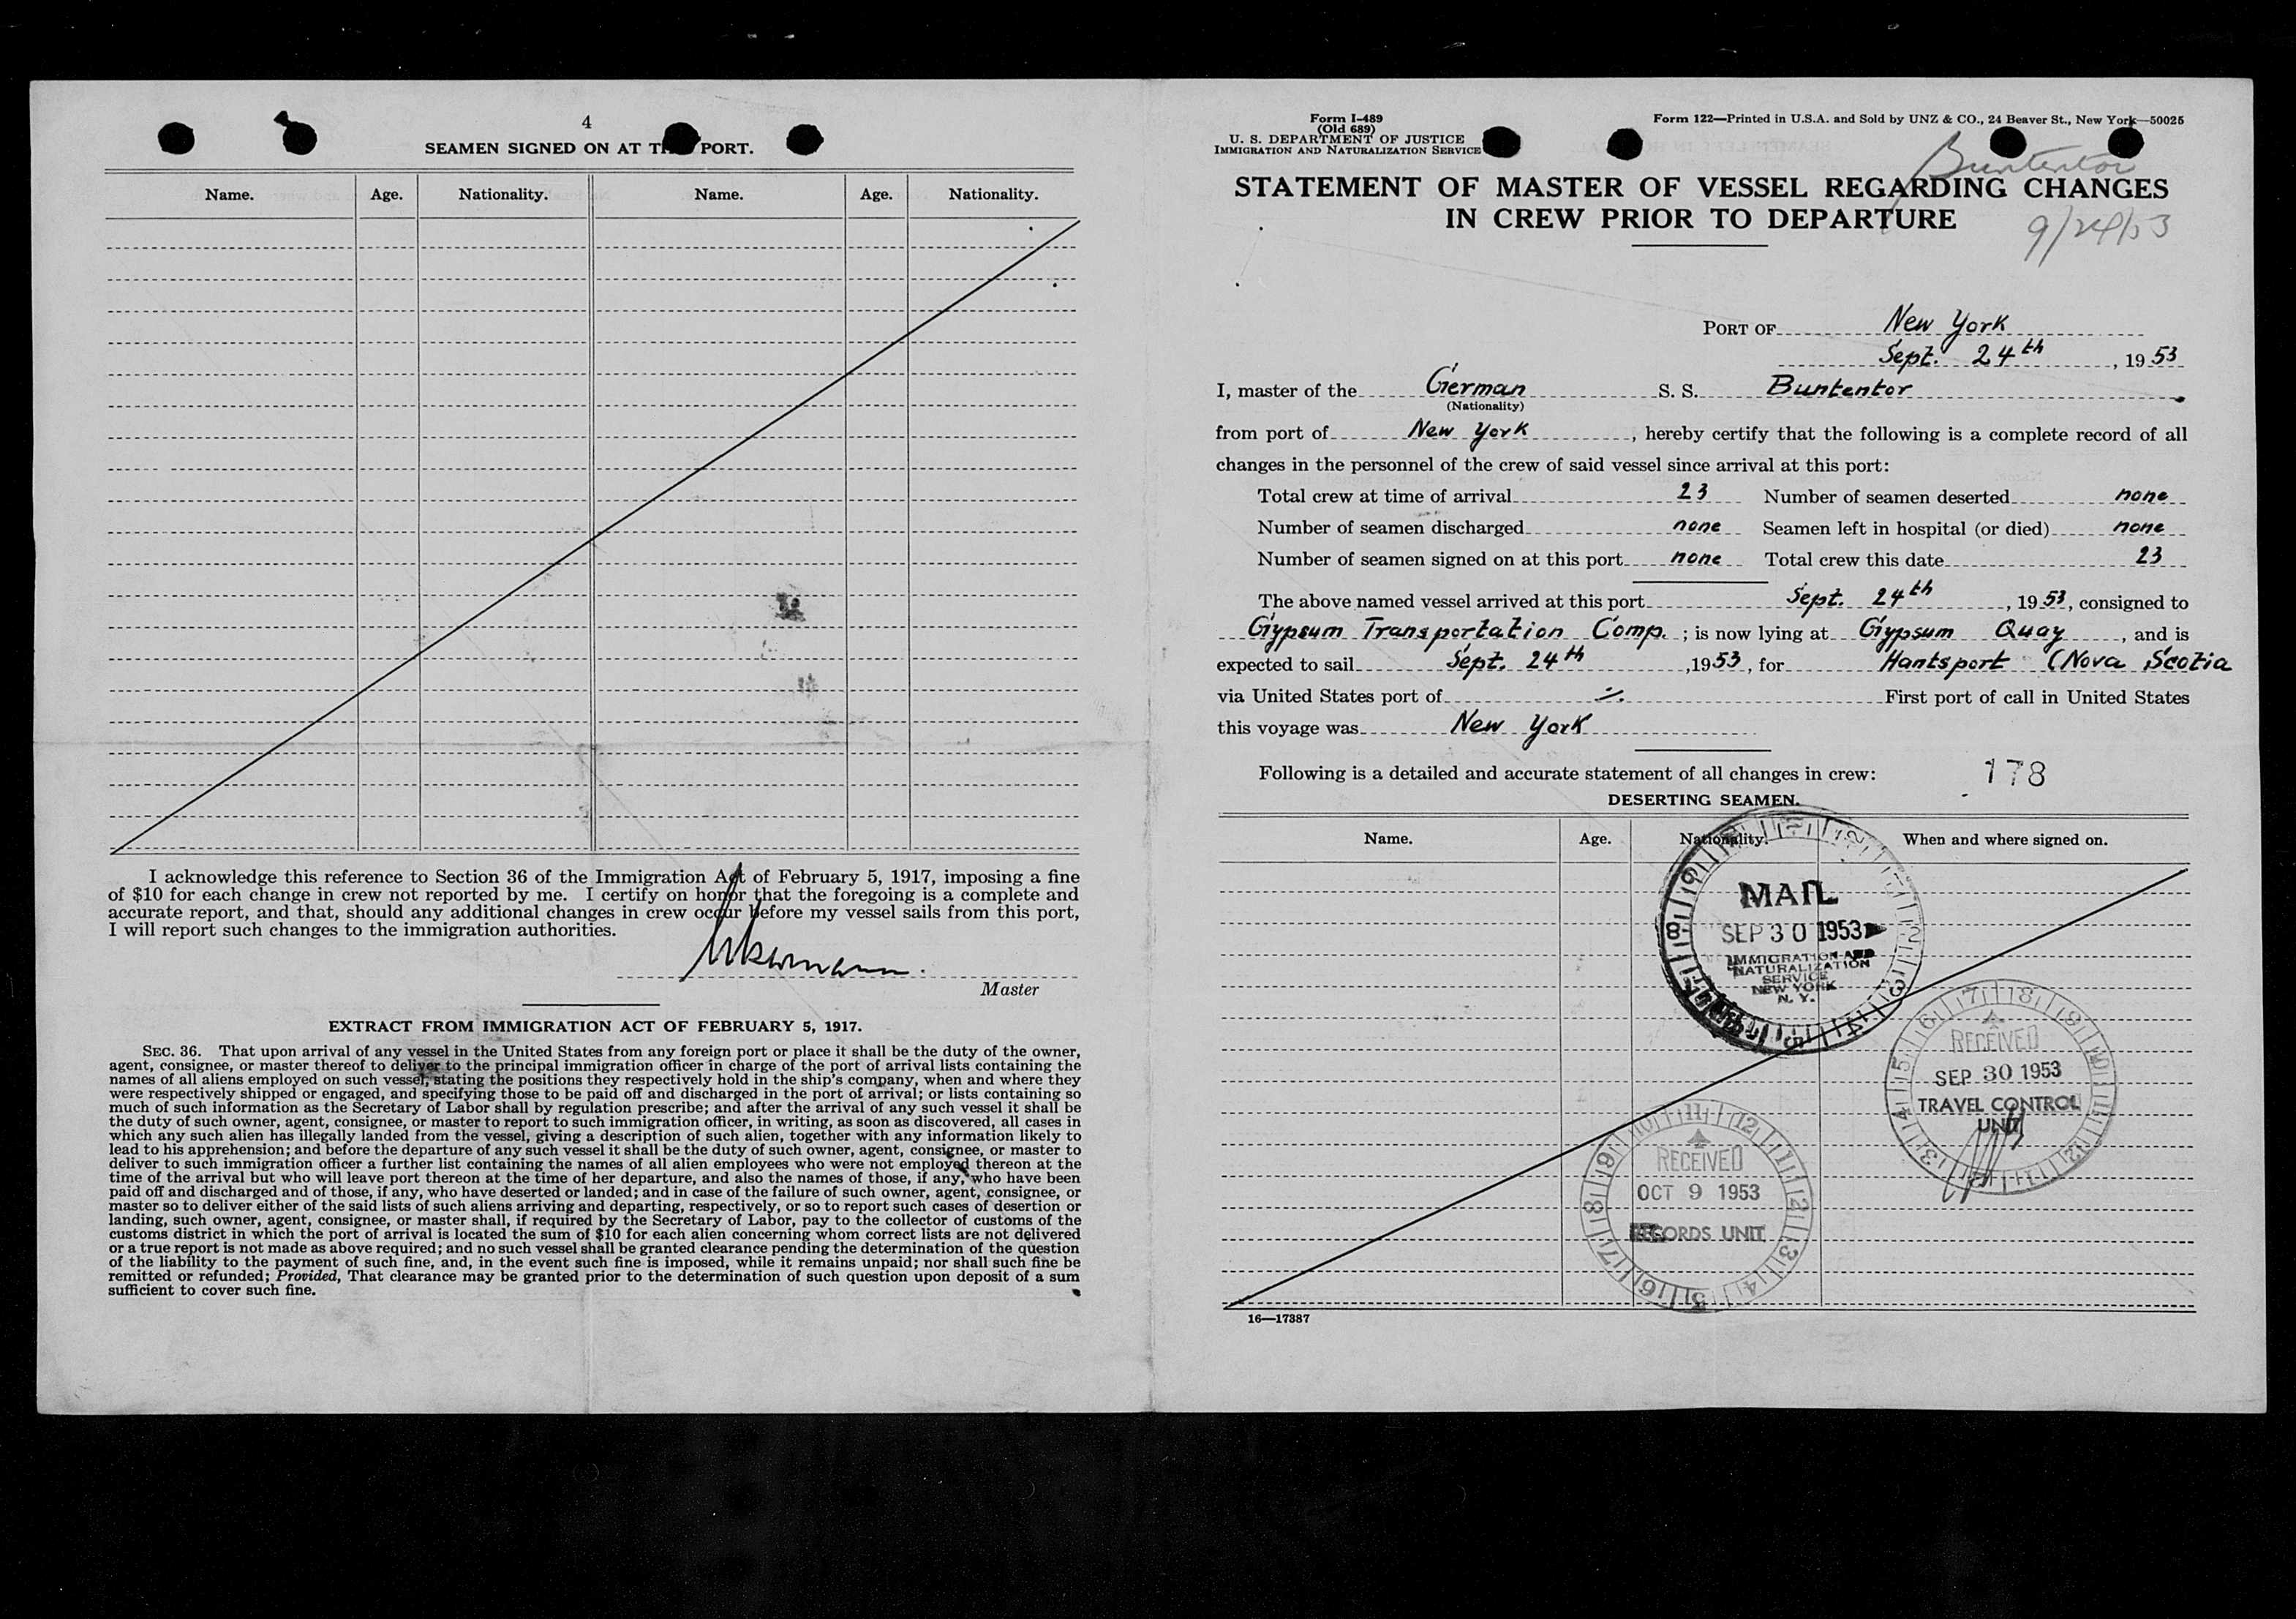 4
SEAMEN SIGNED ON AT TH PORT.
Name. Age. Nationality. Name. Age. Nationality.
I acknowledge this reference to Section 36 of the Immigration Act of February 5, 1917, imposing a fine
of $10 for each change in crew not reported by me. I certify on honor that the foregoing is a complete and
accurate report, and that, should any additional changes in crew occur before my vessel sails from this port,
I will report such changes to the immigration authorities.
Master
EXTRACT FROM IMMIGRATION ACT OF FEBRUARY 5, 1917.
SEC. 36. That upon arrival of any vessel in the United States from any foreign port or place it shall be the duty of the owner,
agent, consignee, or master thereof to deliver to the principal immigration officer in charge of the port of arrival lists containing the
names of all aliens employed on such vessel, stating the positions they respectively hold in the ship's company, when and where they
were respectively shipped or engaged, and specifying those to be paid off and discharged in the port of arrival; or lists containing so
much of such information as the Secretary of Labor shall by regulation prescribe; and after the arrival of any such vessel it shall be
the duty of such owner, agent, consignee, or master to report to such immigration officer, in writing, as soon as discovered, all cases in
which any such alien has illegally landed from the vessel, giving a description of such alien, together with any information likely to
lead to his apprehension; and before the departure of any such vessel it shall be the duty of such owner, agent, consignee, or master to
deliver to such immigration officer a further list containing the names of all alien employees who were not employed thereon at the
time of the arrival but who will leave port thereon at the time of her departure, and also the names of those, if any, who have been
paid off and discharged and of those, if any, who have deserted or landed; and in case of the failure of such owner, agent, consignee, or
master so to deliver either of the said lists of such aliens arriving and departing, respectively, or so to report such cases of desertion or
landing, such owner, agent, consignee, or master shall, if required by the Secretary of Labor, pay to the collector of customs of the
customs district in which the port of arrival is located the sum of $10 for each alien concerning whom correct lists are not delivered
or a true report is not made as above required; and no such vessel shall be granted clearance pending the determination of the question
of the liability to the payment of such fine, and, in the event such fine is imposed, while it remains unpaid; nor shall such fine be
remitted or refunded; Provided, That clearance may be granted prior to the determination of such question upon deposit of a sum
sufficient to cover such fine.
Form I-489
(Old 689)
U. S. DEPARTMENT OF JUSTICE
IMMIGRATION AND NATURALIZATION SERVICE
Form 122—Printed in U.S.A. and Sold by UNZ & CO., 24 Beaver St., New York—50025
Buntentor
STATEMENT OF MASTER OF VESSEL REGARDING CHANGES
IN CREW PRIOR TO DEPARTURE
9/24/53
PORT OF New York
Sept. 24th, 1953
I, master of the German S. S. Buntentor
(Nationality)
from port of New York, hereby certify that the following is a complete record of all
changes in the personnel of the crew of said vessel since arrival at this port:
Total crew at time of arrival 23 Number of seamen deserted none
Number of seamen discharged none Seamen left in hospital (or died) none
Number of seamen signed on at this port none Total crew this date 23
The above named vessel arrived at this port Sept. 24th, 1953, consigned to
Gypsum Transportation Comp. ; is now lying at Gypsum Quay, and is
expected to sail Sept. 24th, 1953, for Hantsport (Nova Scotia
via United States port of ./. First port of call in United States
this voyage was New York
Following is a detailed and accurate statement of all changes in crew: 178
DESERTING SEAMEN.
Name. Age. Nationality. When and where signed on.
MAIL
SEP 30 1953
IMMIGRATION AND
NATURALIZATION
SERVICE
NEW YORK
N. Y.
RECEIVED
SEP 30 1953
TRAVEL CONTROL
UNIT
RECEIVED
OCT 9 1953
RECORDS UNIT
16—17387